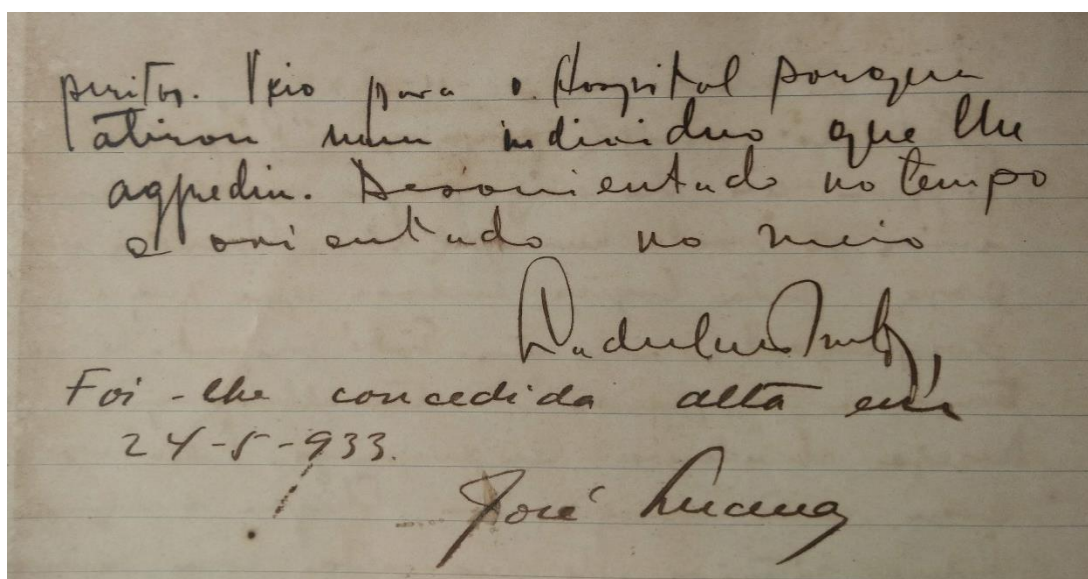 peritos. Veio para o Hospital porque
atirou num individuo que lhe
agrediu. Desorientado no tempo
e orientado no meio
Foi-lhe concedida alta em
24-5-933.
José Lucena